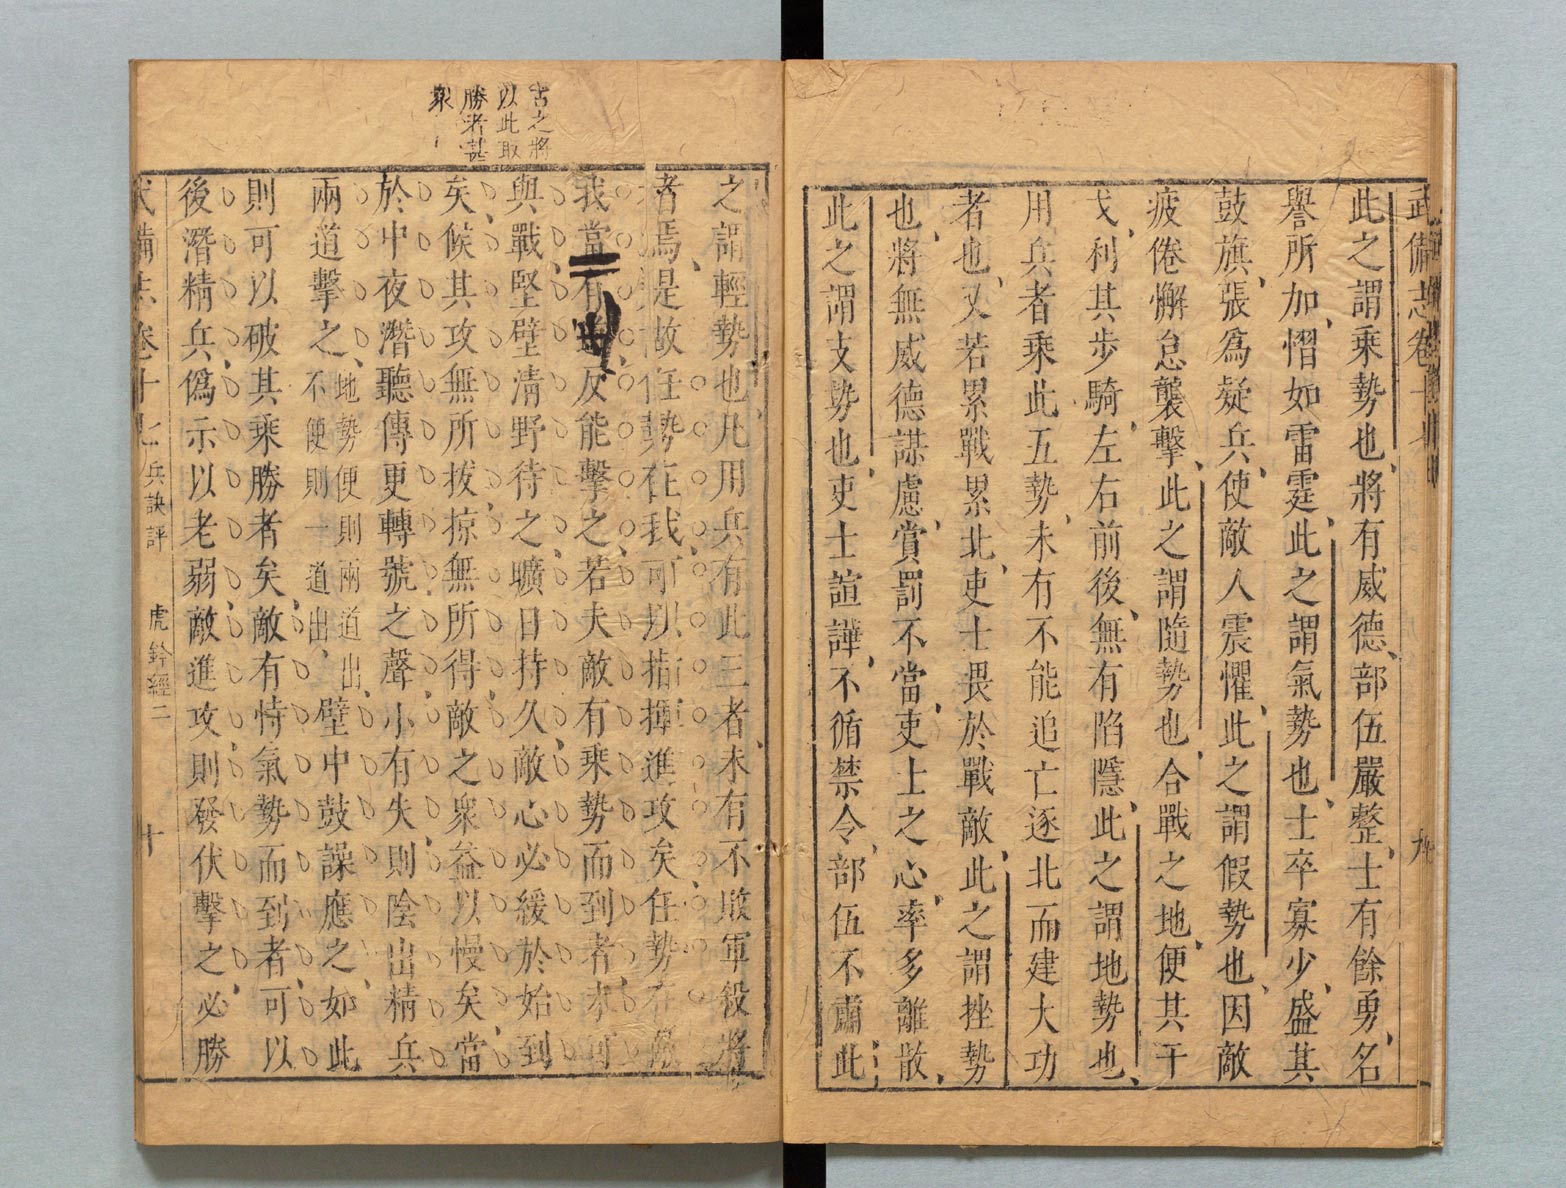 武備志卷十
九
此之謂乘勢也將有威德部伍嚴整士有餘勇名
譽所加慴如雷霆此之謂氣勢也士卒寡少盛其
鼓旗張爲疑兵使敵人震懼此之謂假勢也因敵
疲倦懈怠襲擊此之謂隨勢也合戰之地便其干
戈利其步騎左右前後無有陷隱此之謂地勢也
用兵者乘此五勢未有不能追亡逐北而建大功
者也又若累戰累北吏士畏於戰敵此之謂挫勢
也將無威德謀慮賞罰不當吏士之心率多離散
此之謂支勢也吏士諠譁不循禁令部伍不肅此
古之將
以此取
勝者甚
衆
之謂輕勢也凡用兵有此三者未有不敗軍殺將
者焉是故任勢在我可以指揮進攻矣任勢在
我當有反能擊之若夫敵有乘勢而到者未可
與戰堅壁清野待之曠日持久敵心必緩於始到
矣候其攻無所拔掠無所得敵之衆益以慢矣當
於中夜潛聽傳更轉號之聲小有失則陰出精兵
兩道擊之地勢便則兩道出不便則一道出壁中鼓譟應之如此
則可以破其乘勝者矣敵有恃氣勢而到者可以
後潛精兵僞示以老弱敵進攻則發伏擊之必勝
武備志卷十 兵訣評 虎鈐經二 十